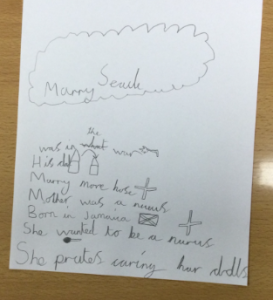 Marry Seacule
the
was in what war
His dad
Marry more huse
Mother was a nurus
Born in Jamaica
She wanted to be a nurus
She prutes caring hur dolls